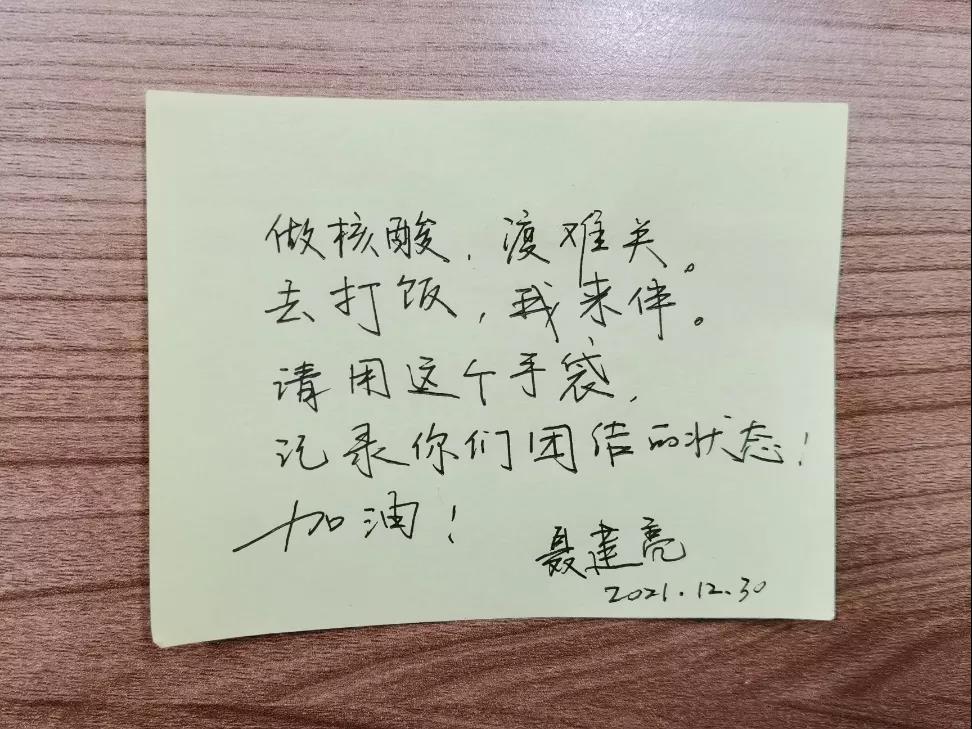 做核酸，渡难关。
去打饭，我来伴。
请用这个手袋，
记录你们团结的状态！
加油！
聂建亮
2021.12.30